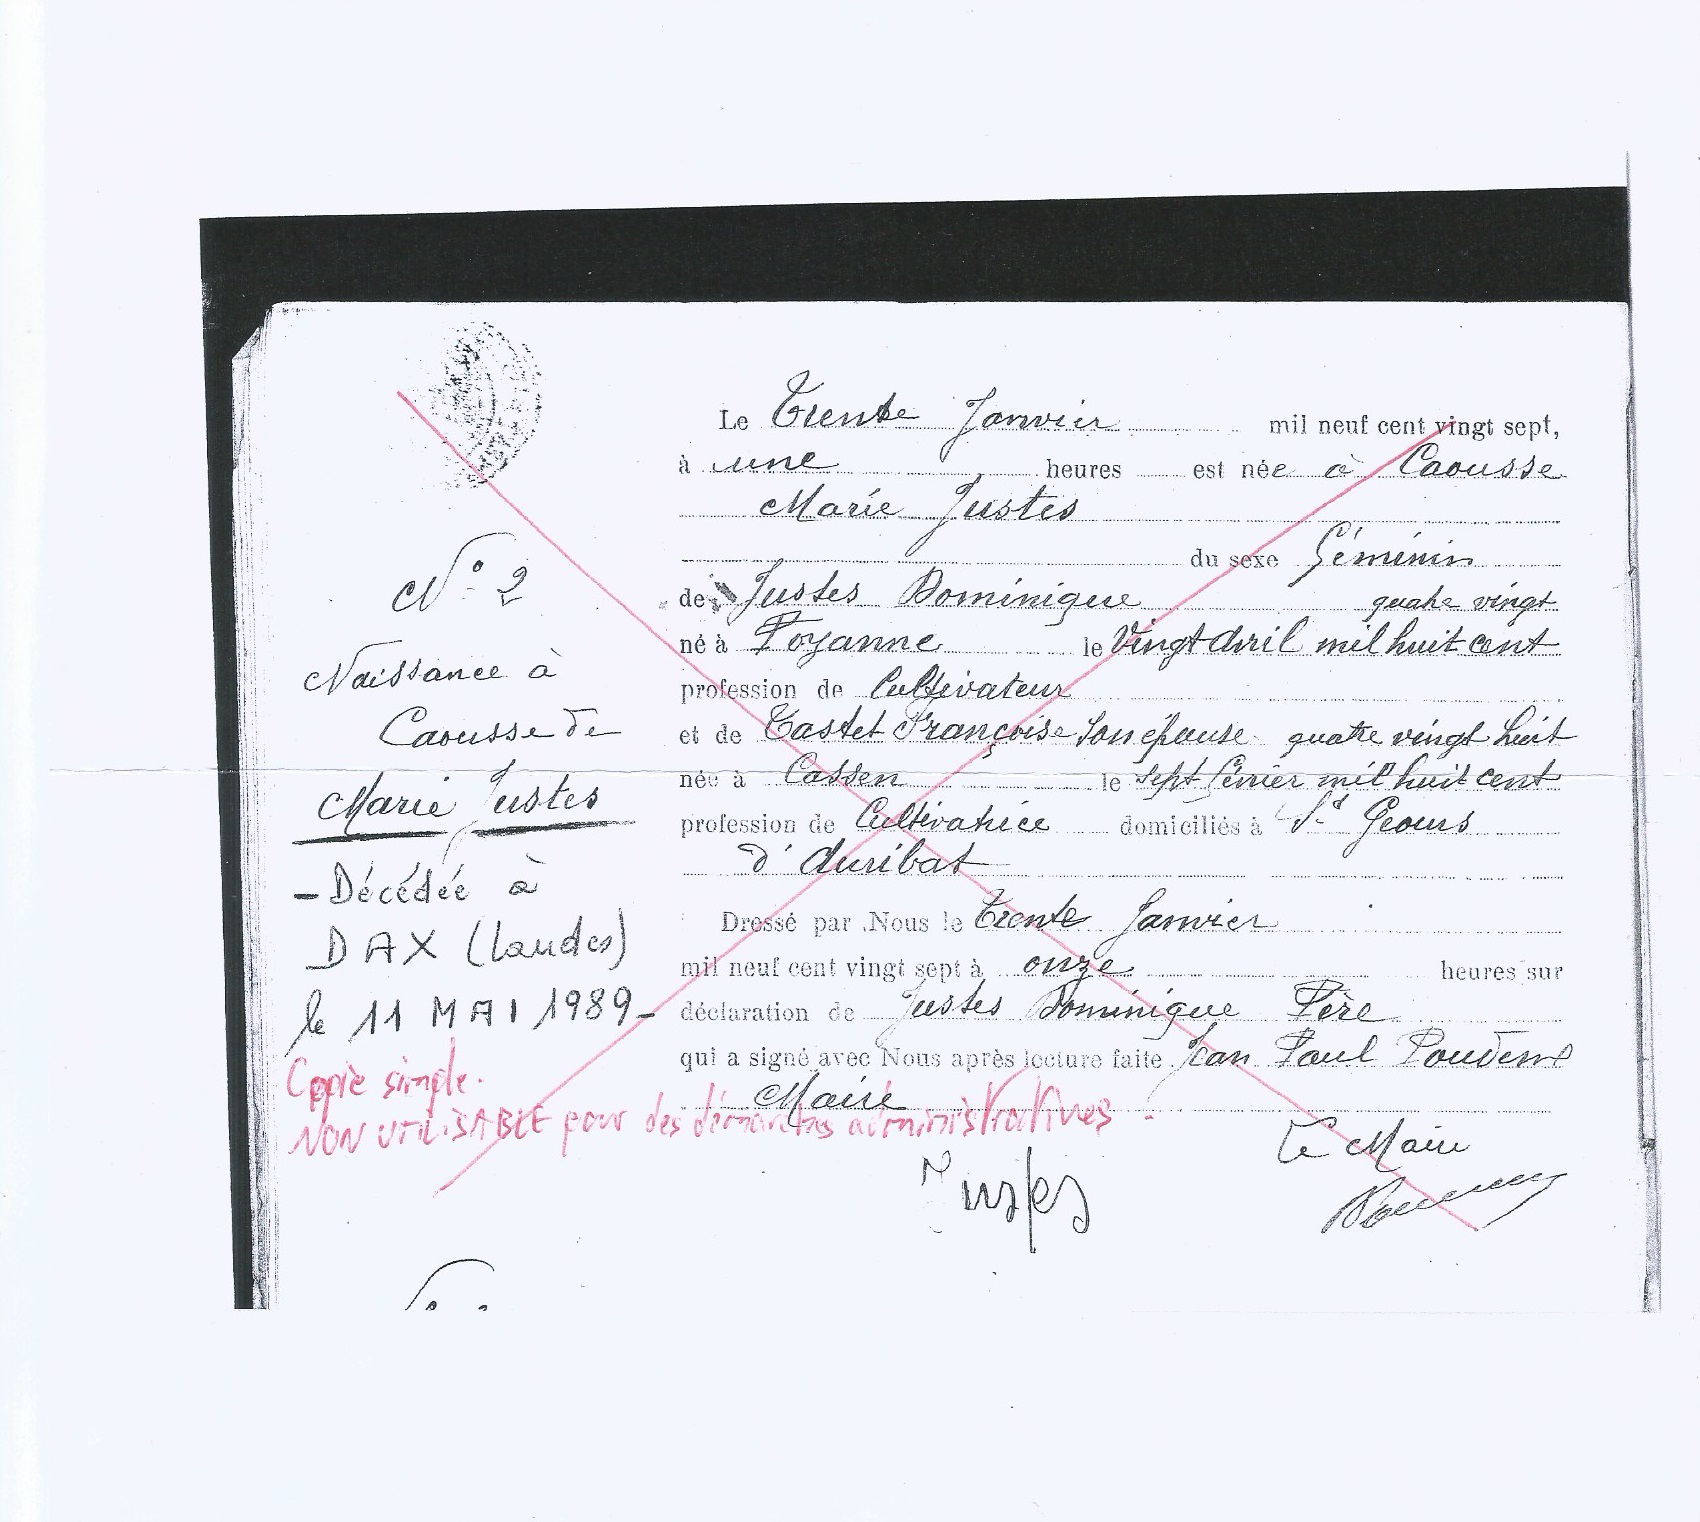 N° 2
Naissance à
Caousse de
Marie Justes
- Décédée à
DAX (Landes)
le 11 MAI 1989 -
Copie simple.
NON UTILISABLE pour des démarches administratives -
Le Trente Janvier mil neuf cent vingt sept,
à une heures est née à Caousse
Marie Justes
du sexe féminin
de Justes Dominique quatre vingt
né à Poyanne le Vingt avril mil huit cent
profession de Cultivateur
et de Tastet Françoise son épouse quatre vingt huit
née à Cassen le sept février mil huit cent
profession de Cultivatrice domiciliés à St Geours
d'Auribat
Dressé par Nous le Trente Janvier
mil neuf cent vingt sept à onze heures sur
déclaration de Justes Dominique Père
qui a signé avec Nous après lecture faite Jean Paul
Maire
Le Maire
Justes